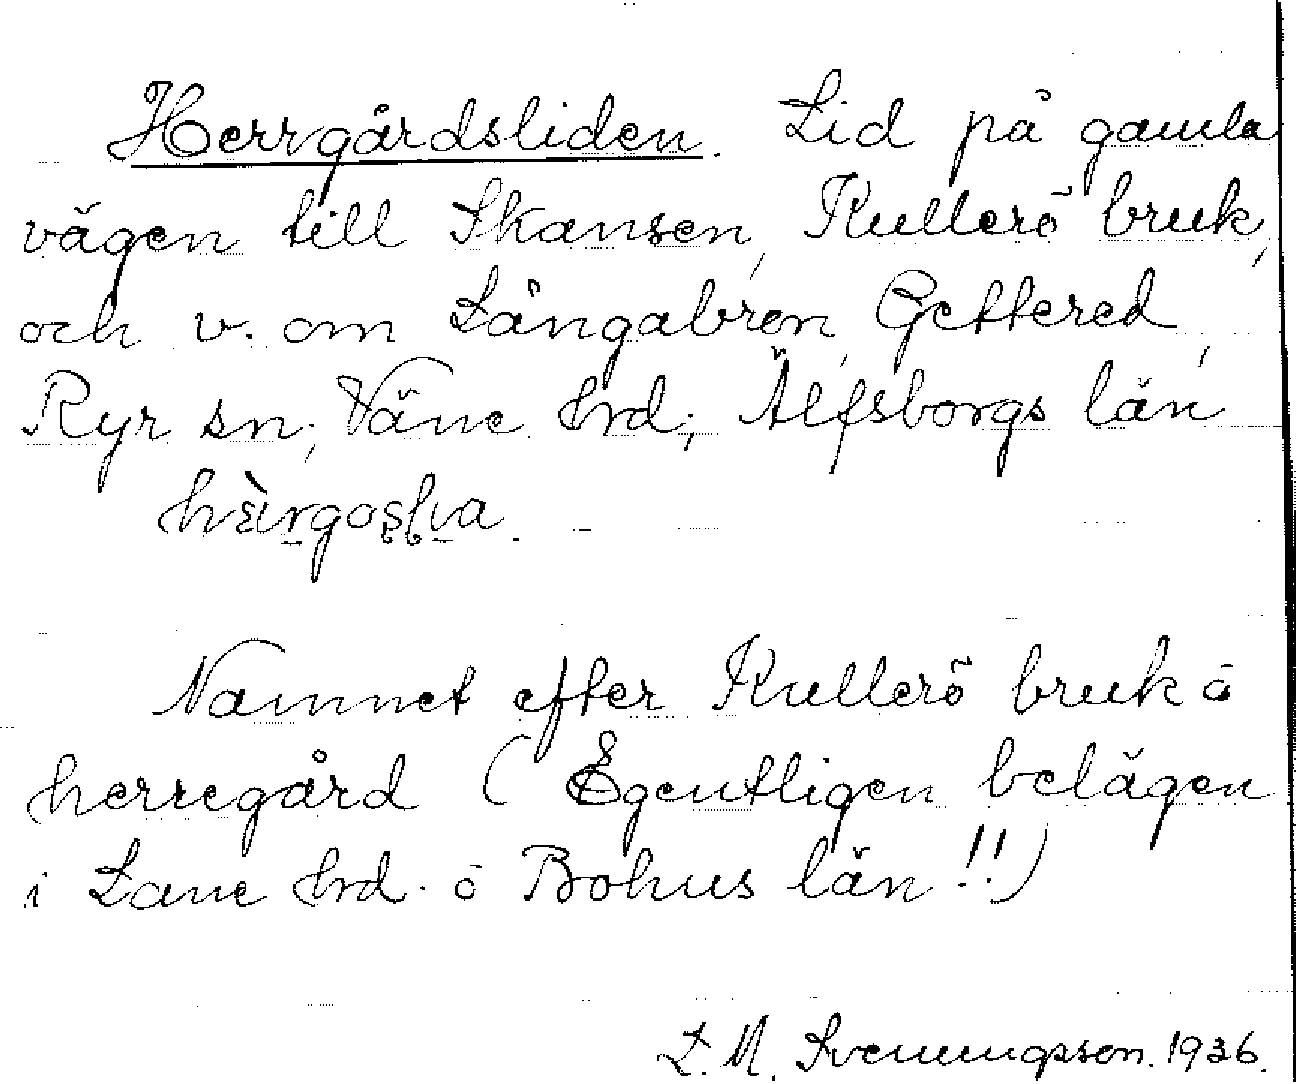 Herrgårdsliden. Lid på gamla
vägen till Skansen, Kullerö bruk,
och v. om Långabron, Gettered,
Ryr sn; Väne hrd; Älfsborgs län

Namnet efter Kullerö bruk o
herregård (Egentligen belägen
i Lane hrd. o Bohus län!!)
L. M. Svenungsson. 1936.